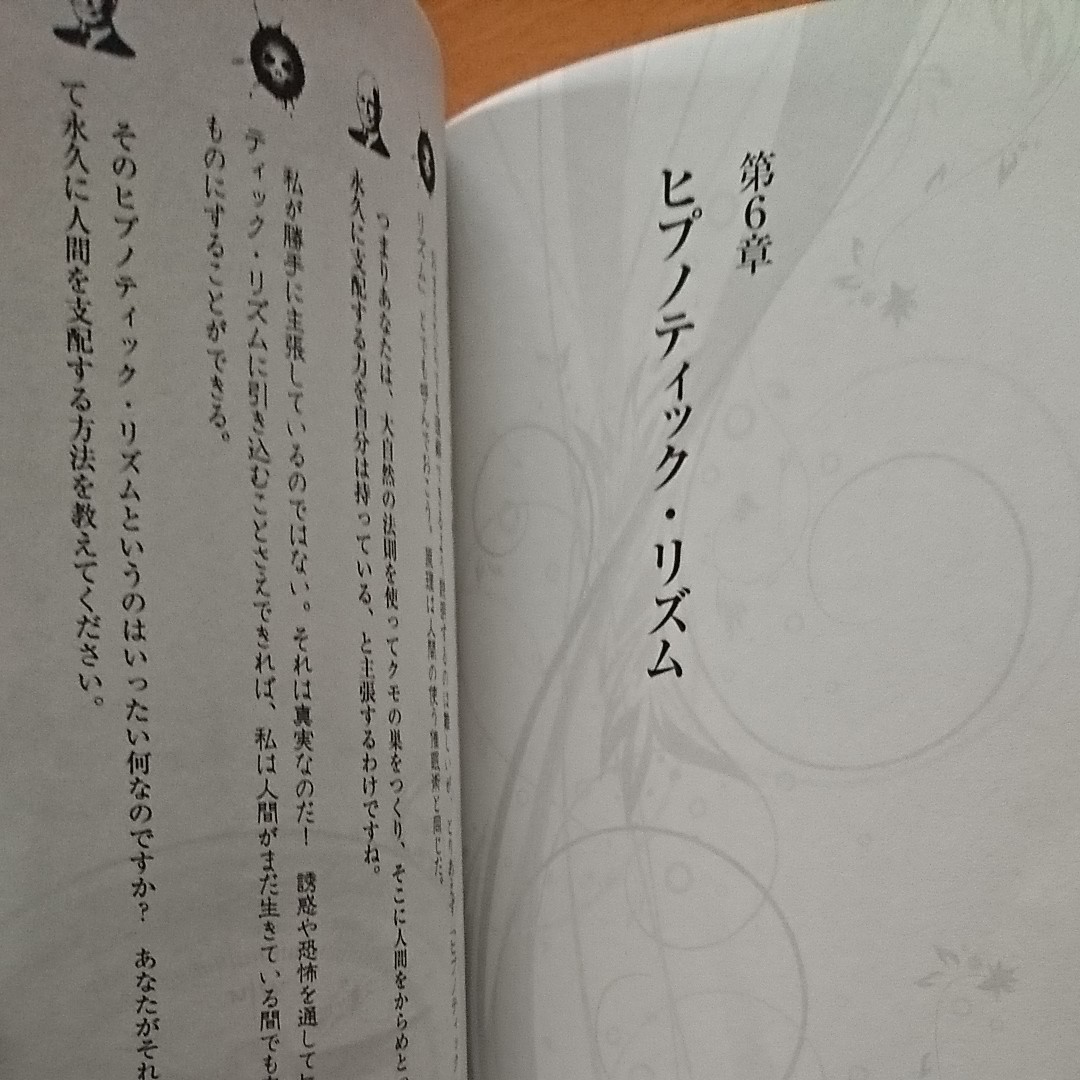 第6章
ヒプノティック・リズム
リズム」とでも呼んでおこう。原理は人間の使う催眠術と同じだ。
つまりあなたは、大自然の法則を使ってクモの巣をつくり、そこに人間をからめと
永久に支配する力を自分は持っている、と主張するわけですね。
私が勝手に主張しているのではない。それは真実なのだ！　誘惑や恐怖を通して
ティック・リズムに引き込むことさえできれば、私は人間がまだ生きている間でも
ものにすることができる。
そのヒプノティック・リズムというのはいったい何なのですか？　あなたがそれ
て永久に人間を支配する方法を教えてください。